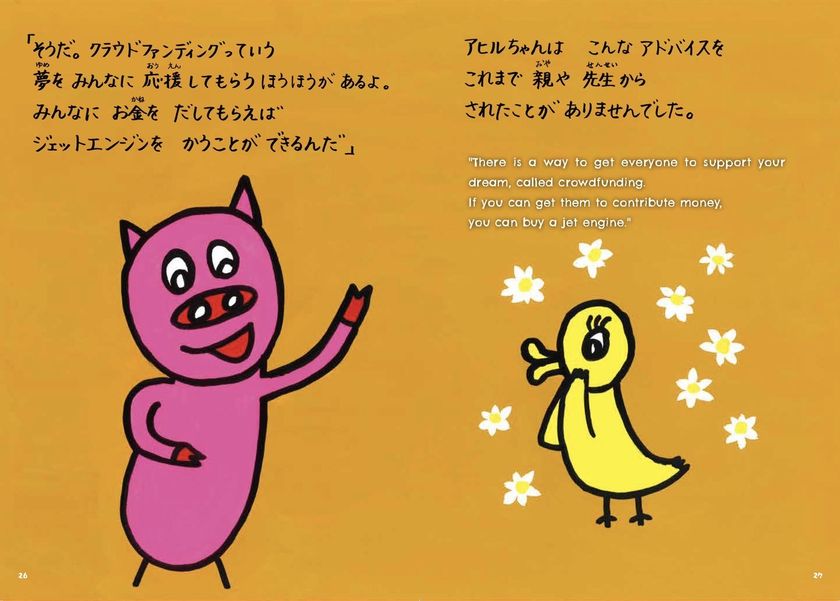 「そうだ。クラウドファンディングっていう
夢を みんなに 応援してもらう ほうほうが あるよ。
みんなに お金を だしてもらえば
ジェットエンジンを かうことが できるんだ」
アヒルちゃんは こんな アドバイスを
これまで 親や 先生から
されたことが ありませんでした。
"There is a way to get everyone to support your
dream, called crowdfunding.
If you can get them to contribute money,
you can buy a jet engine."
26
27